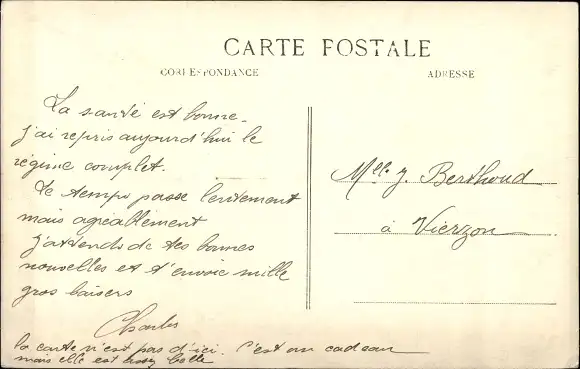 CARTE POSTALE
CORRESPONDANCE
ADRESSE
La santé est bonne.
j'ai repris aujourd'hui le
régime complet.
Le temps passe lentement
mais agréablement
j'attends de tes bonnes
nouvelles et t'envoie mille
gros baisers
Charles
la carte n'est pas d'ici. C'est un cadeau
mais elle est assez belle
Mlle J. Berthoud
à Vierzon